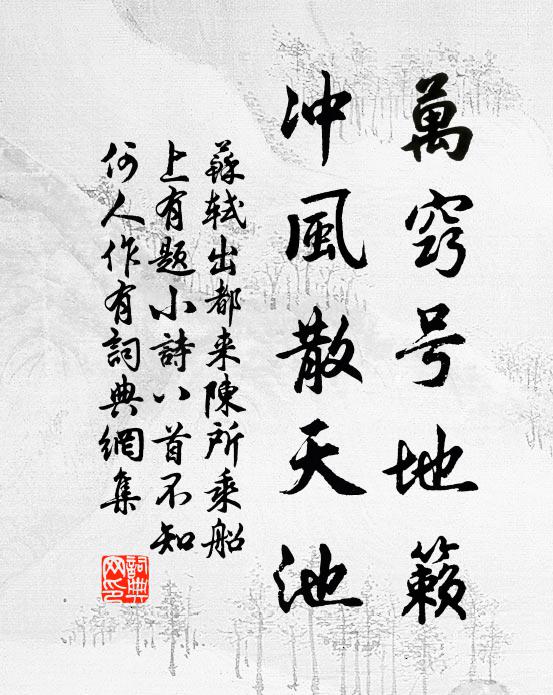 萬竅号地籟
冲風散天池
蘇軾出都来陳所乘船
上有題小詩八首不知
何人作有詞典網集
詞典网印